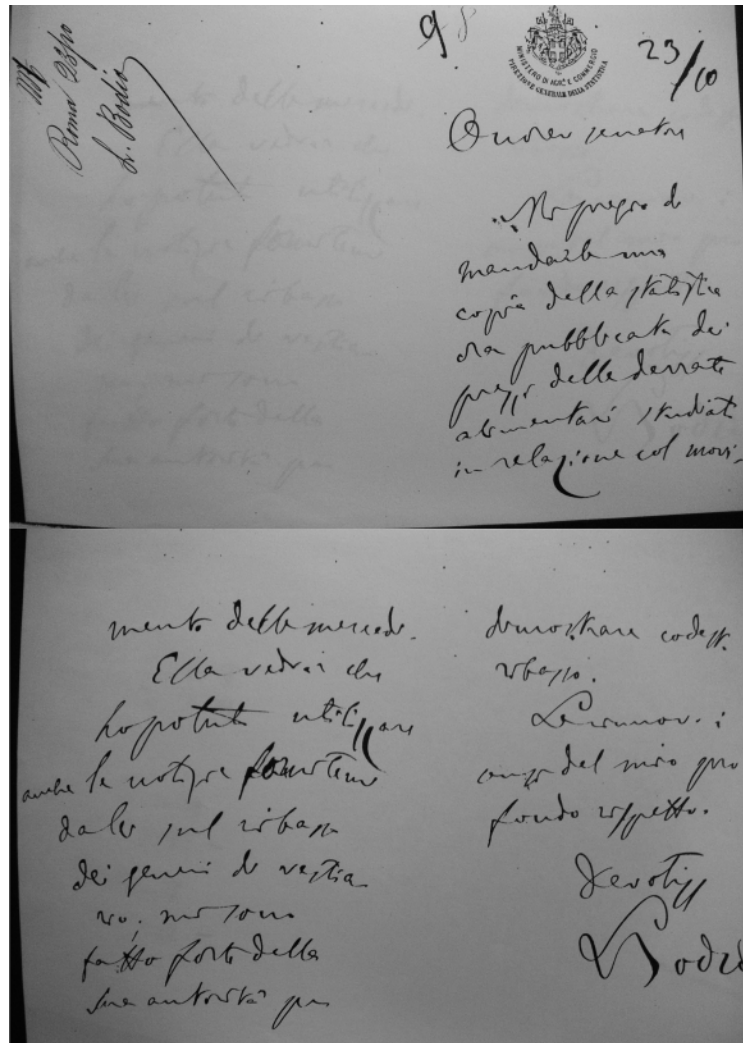 98
MINISTERO DI AGRIC. E COMMERCIO
DIREZIONE GENERALE DELLA STATISTICA
23/10
Roma 23/10
L. Bodio
Onorev senatore
Mi pregio di
mandarle una
copia della statistica
ora pubblicata dei
prezzi delle derrate
alimentari studiati
in relazione col movi-
mento delle mercedi.
Ella vedrà che
ho potuto utilizzare
anche le notizie forniteme
da lei sul ribasso
dei generi di vestia
rio; mi sono
fatto forte della
sua autorità per
dimostrare codesto
ribasso.
Le rinnov. i
sensi del mio pro
fondo rispetto.
Devotiss
Bodio